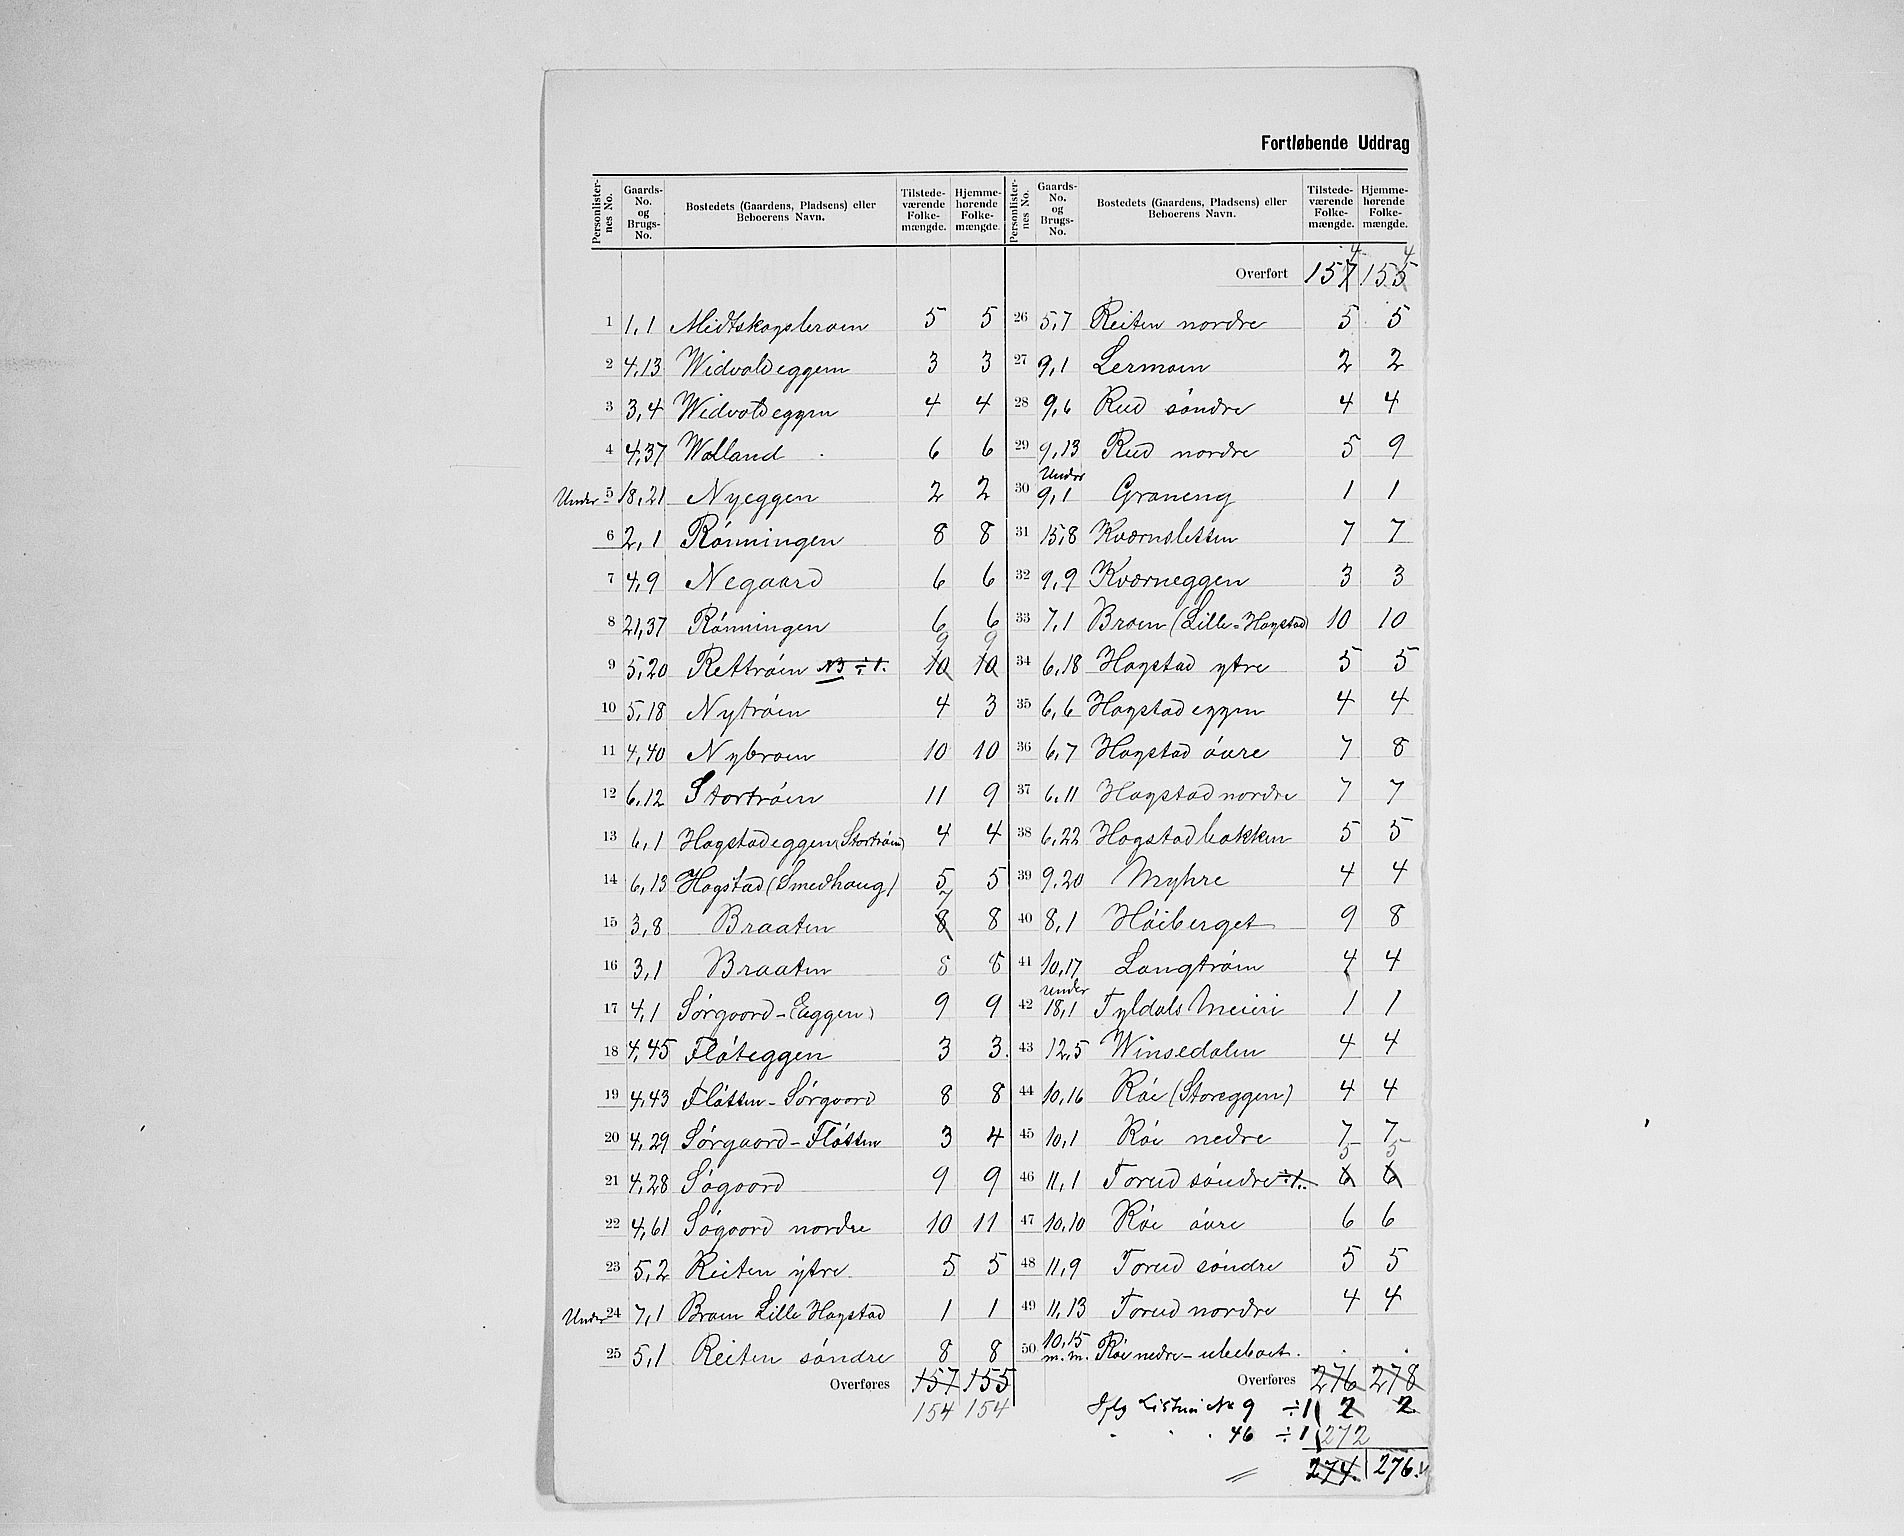 Fortløbende Uddrag
Personlister-nes No. | Gaards-No. og Brugs-No. | Bostedets (Gaardens, Pladsens) eller Beboerens Navn. | Tilstede-værende Folke-mængde. | Hjemme-hørende Folke-mængde.
1 | 1,1 | Midtskogsbroen | 5 | 5
2 | 4,13 | Widvoldeggen | 3 | 3
3 | 3,4 | Widvoldeggen | 4 | 4
4 | 4,37 | Wolland | 6 | 6
Under 5 | 18,21 | Nyeggen | 2 | 2
6 | 2,1 | Rønningen | 8 | 8
7 | 4,9 | Negaard | 6 | 6
8 | 21,37 | Rønningen | 6 | 6
9 | 5,20 | Rettrøen N3 ÷1. | 10 9 | 10 9
10 | 5,18 | Nytrøen | 4 | 3
11 | 4,40 | Nybroen | 10 | 10
12 | 6,12 | Stortrøen | 11 | 9
13 | 6,1 | Hogstadeggen (Stortrøen) | 4 | 4
14 | 6,13 | Hogstad (Smedhaug) | 5 | 5
15 | 3,8 | Braaten | 8 7 | 8
16 | 3,1 | Braaten | 8 | 8
17 | 4,1 | Sørgaard-(Eggen) | 9 | 9
18 | 4,45 | Fløteggen | 3 | 3.
19 | 4,43 | Fløtten-Sørgaard | 8 | 8
20 | 4,29 | Sørgaard-Fløtten | 3 | 4
21 | 4,28 | Søgaard | 9 | 9
22 | 4,61 | Søgaard nordre | 10 | 11
23 | 5,2 | Reiten ytre | 5 | 5
Under 24 | 7,1 | Broen Lille Hogstad | 1 | 1
25 | 5,1 | Reiten søndre | 8 | 8
Overføres | 157 | 155
154 | 154
Personlister-nes No. | Gaards-No. og Brugs-No. | Bostedets (Gaardens, Pladsens) eller Beboerens Navn. | Tilstede-værende Folke-mængde. | Hjemme-hørende Folke-mængde.
Overført | 157 4 | 155 4
26 | 5,7 | Reiten nordre | 5 | 5
27 | 9,1 | Lermoen | 2 | 2
28 | 9,6 | Rud søndre | 4 | 4
29 | 9,13 | Rud nordre | 5 | 9
30 | Under 9,1 | Graneng | 1 | 1
31 | 15,8 | Kværnsletten | 7 | 7
32 | 9,9 | Kværneggen | 3 | 3
33 | 7,1 | Broen (Lille-Hogstad) | 10 | 10
34 | 6,18 | Hogstad ytre | 5 | 5
35 | 6,6 | Hogstadeggen | 4 | 4
36 | 6,7 | Hogstad øvre | 7 | 8
37 | 6,11 | Hogstad nordre | 7 | 7
38 | 6,22 | Hogstadbakken | 5 | 5
39 | 9,20 | Myhre | 4 | 4
40 | 8,1 | Høiberget | 9 | 8
41 | 10,17 | Langtrøen | 4 | 4
42 | under 18,1 | Tyldals Meieri | 1 | 1
43 | 12,5 | Winsedalen | 4 | 4
44 | 10,16 | Røe (Storeggen) | 4 | 4
45 | 10,1 | Røe nedre | 7 | 7
46 | 11,1 | Torud søndre ÷1. | 6 5 | 6 5
47 | 10,10 | Røe øvre | 6 | 6
48 | 11,9 | Torud søndre | 5 | 5
49 | 11,13 | Torud nordre | 4 | 4
50 | 10,15 m.m. | Røe nedre - ubeboet. | . | .
Overføres | 276 | 278
Iflg Listen No 9 ÷1 | 2 | 2
" " 46 ÷1 | 272
274. | 276.